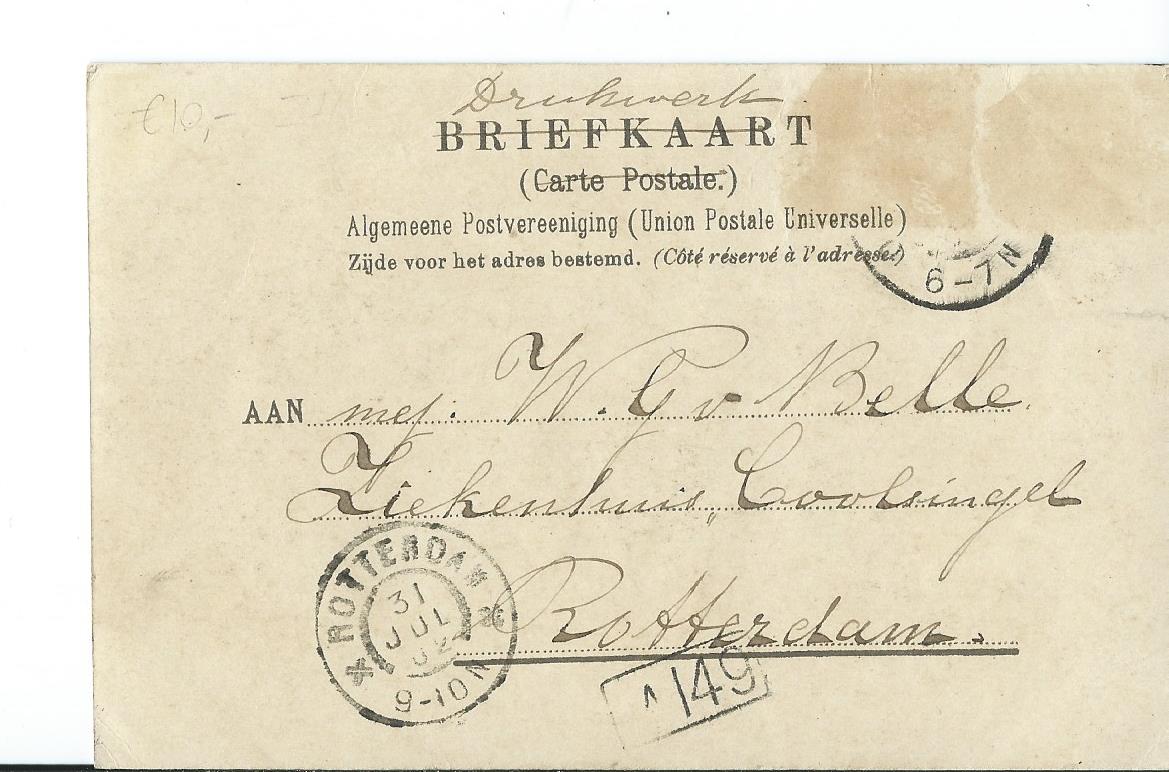 €10,-
Drukwerk
BRIEFKAART
(Carte Postale.)
Algemeene Postvereeniging (Union Postale Universelle)
Zijde voor het adres bestemd. (Côté réservé à l'adresse.)
6-7N
AAN mej. W. G v Belle.
Ziekenhuis, Coolsingel
Rotterdam.
ROTTERDAM
31
JUL
02
9-10N
149